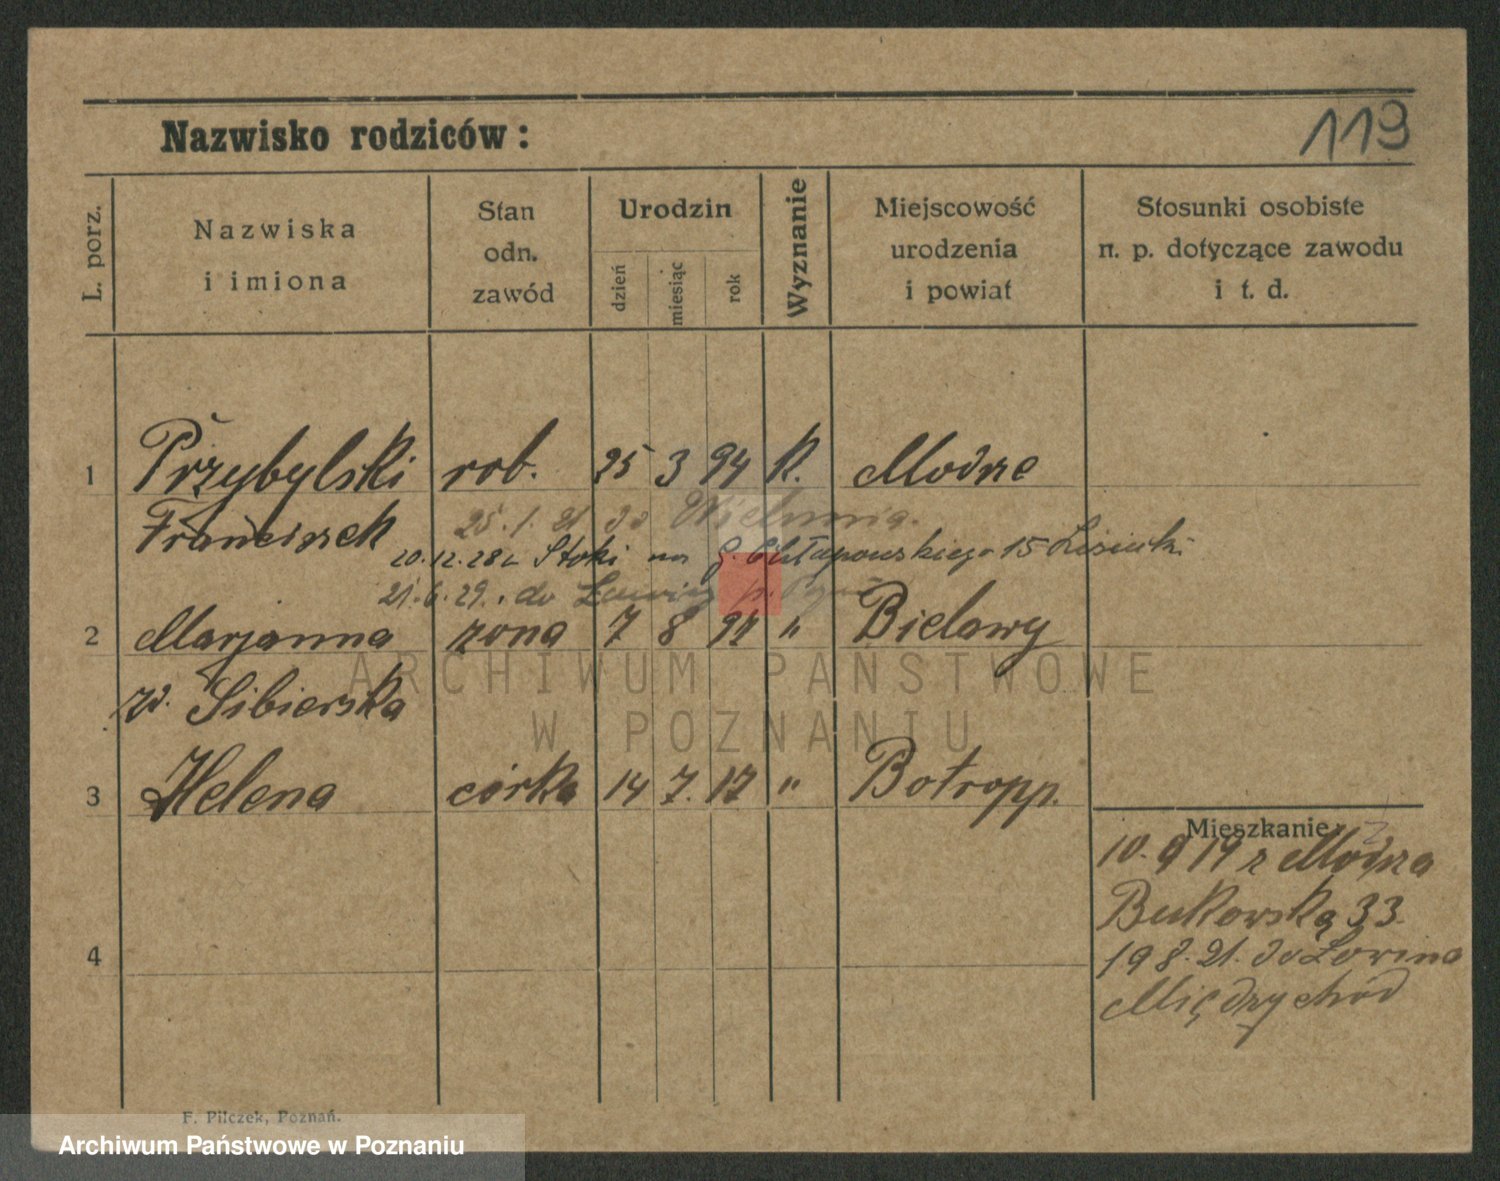 119
Nazwisko rodziców:
L. porz.
Nazwiska
i imiona
Stan
odn.
zawód
Urodzin
dzień
miesiąc
rok
Wyznanie
Miejscowość
urodzenia
i powiat
Stosunki osobiste
n. p. dotyczące zawodu
i t. d.
1 Przybylski rob. 25 3 94 K. Modrze
Franciszek 25.1.21 do
20.12.28 z Stoki na Chłapowskiego 15
21.6.29. do
2 Marjanna zona 7 8 " Bielawy
Sibierska
3 Helena córka 14 7. 17 " Botropp.
Mieszkanie:
10.9 19 z Modrza
Bukowska 33
19 8. 21. do Lowina
Międzychód
4
F. Pilczek, Poznań.
ARCHIWUM PAŃSTWOWE
W POZNANIU
Archiwum Państwowe w Poznaniu